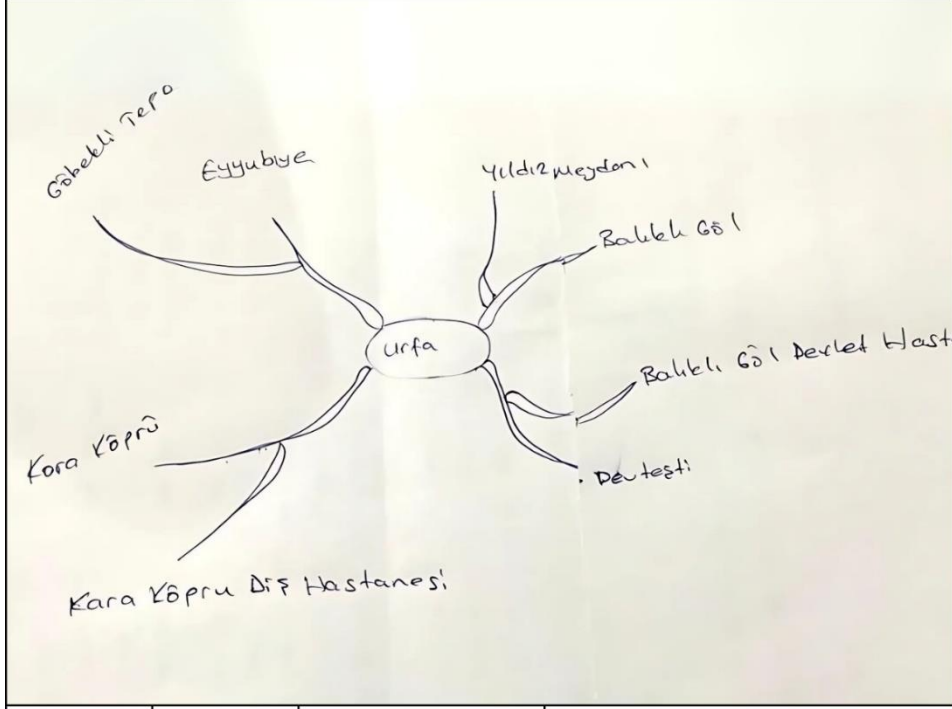 Göbekli Tepe
Eyyubiye
Yıldız meydanı
Balıklı Göl
Urfa
Balıklı Göl Devlet Hast
Kara Köprü
Devteşti
Kara Köprü Diş Hastanesi